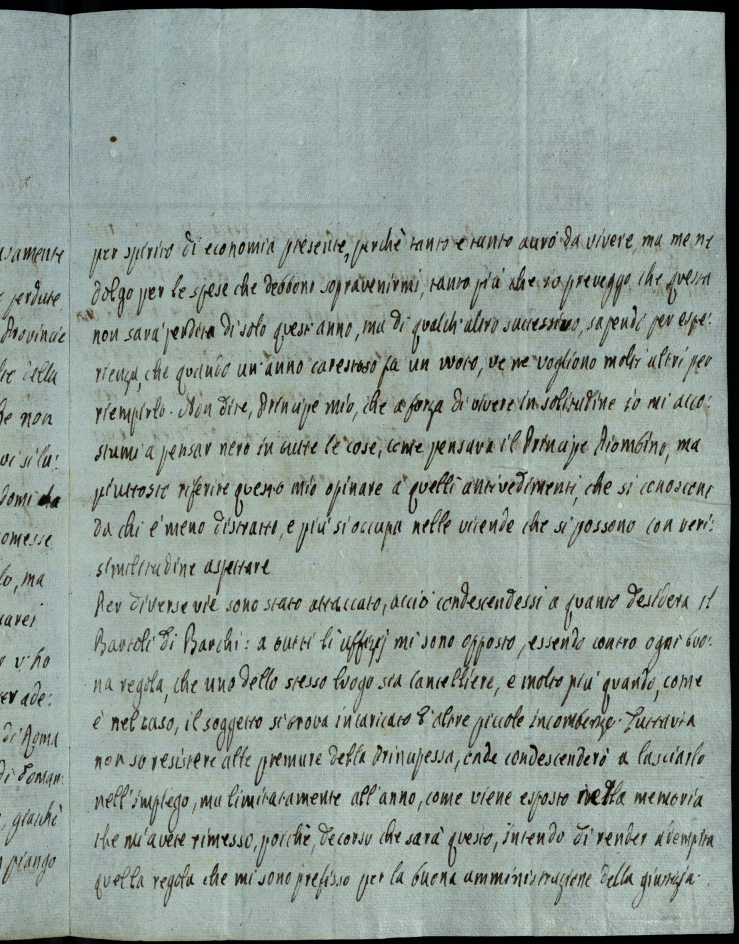 per spirito di economia presente, perchè tanto e tanto avrò da vivere, ma me ne
dolgo per le spese che debbono sopravenirmi, tanto più che io preveggo, che questa
non sarà perdita di solo quest'anno, ma di qualch'altro successivo, sapendo per espe:
rienza, che quando un'anno carestoso fa un vuoto, ve ne vogliono molti altri per
riempirlo. Non dite, Principe mio, che a forza di vivere in solitudine io mi acco:
stumi a pensar nero in tutte le cose, come pensava il Principe Piombino, ma
piuttosto riferite questo mio opinare a quelli antivedimenti, che si conoscono
da chi è meno distratto, e più si occupa nelle vicende che si possono con veri:
similitudine aspettare
Per diverse vie sono stato attaccato, acciò condescendessi a quanto desidera il
Bartoli di Barchi: a tutti li uffizj mi sono opposto, essendo contro ogni buo:
na regola, che uno dello stesso luogo sia cancelliere, e molto più quando, come
è nel caso, il soggetto si trova incaricato d'altre piccole incombenze. Tuttavia
non so resistere alle premure della Principessa, onde condescenderò a lasciarlo
nell'impiego, ma limitatamente all'anno, come viene esposto nella memoria
che mi avete rimesso, poichè, decorso che sarà questo, intendo di render adempita
quella regola che mi sono prefisso per la buona amministrazione della giustizia.
vamente
perdute
Provincie
della
he non
vi si lu:
domi da
omesse
lo, ma
v'ho
er ade:
di Roma
di doman:
giacchè
piango